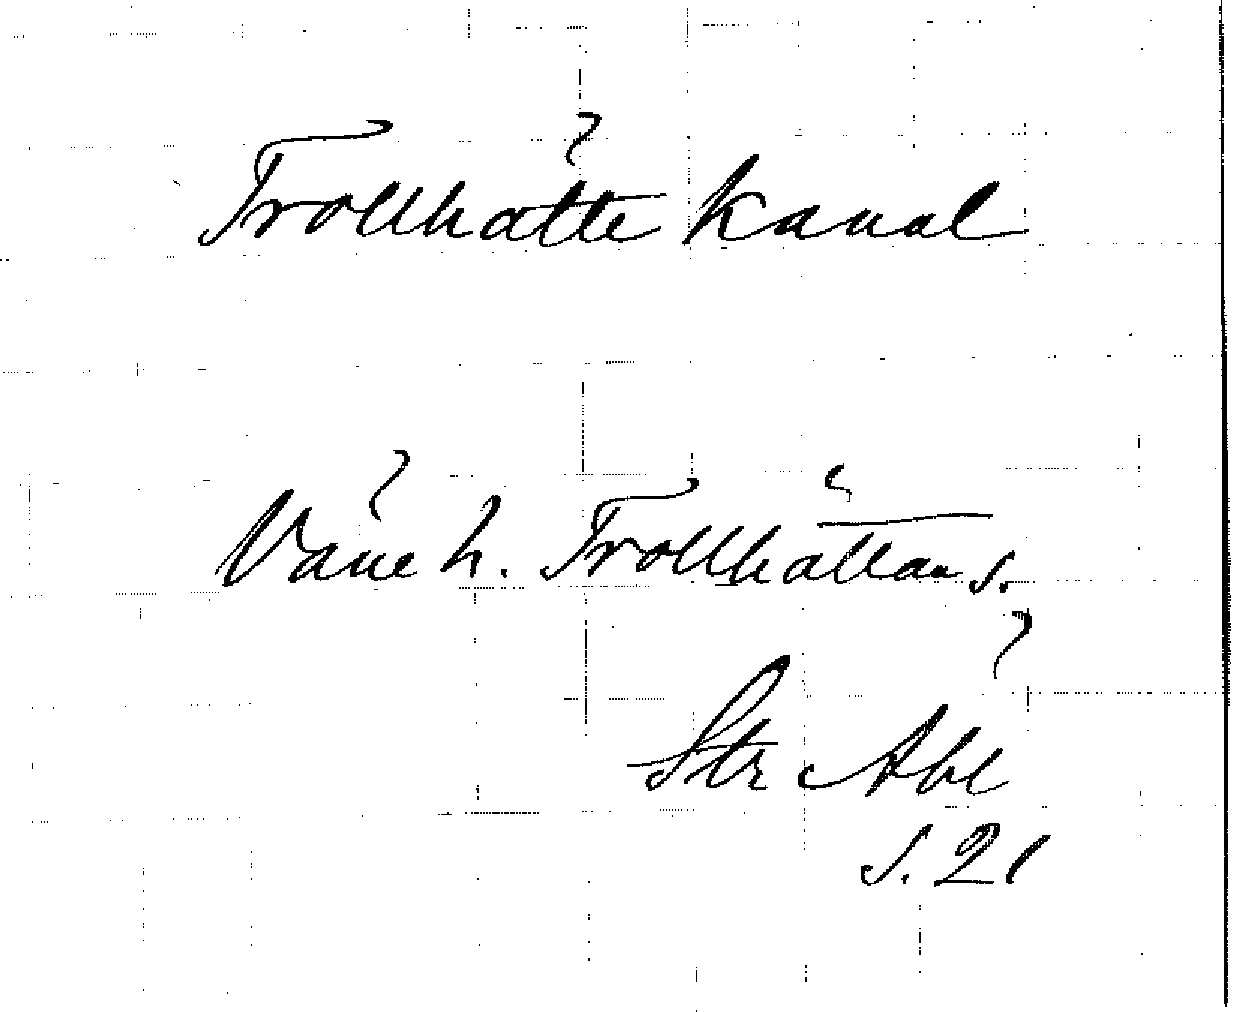 Trollhätte kanal
Väne h. Trollhättans s.
Str Åbe
s. 21